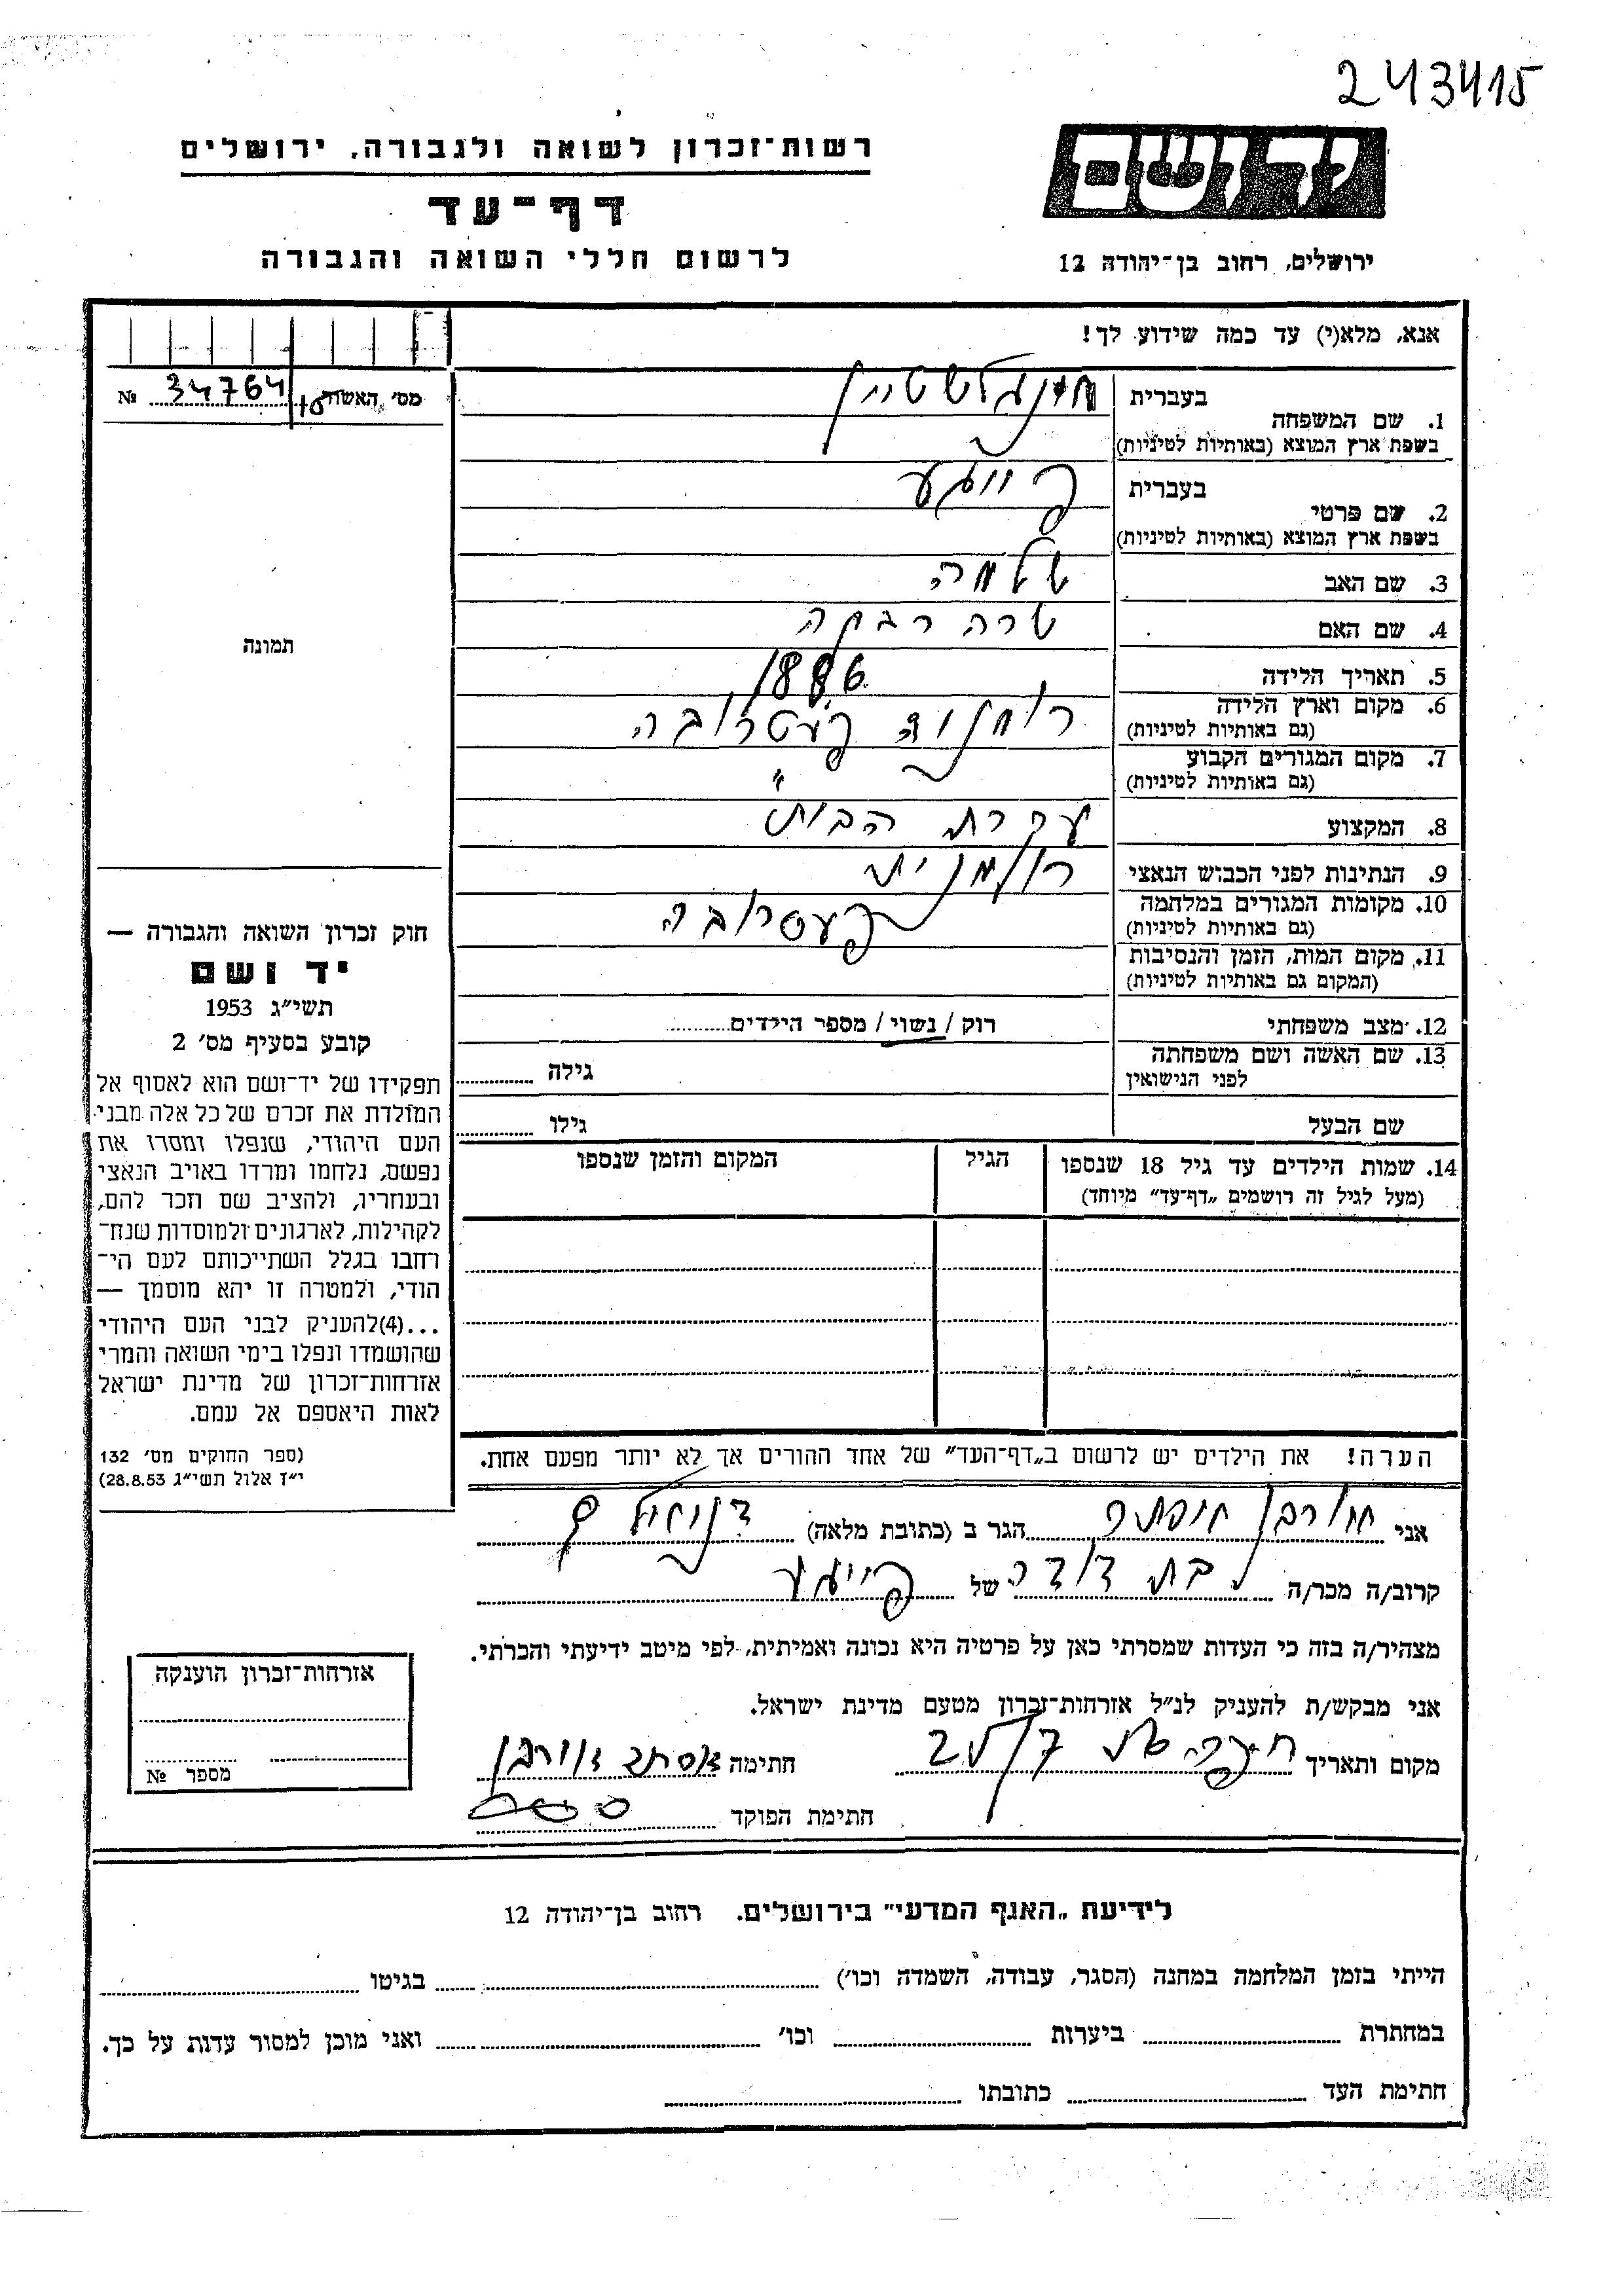 243415
יד ושם
רשות־זכרון לשואה ולגבורה, ירושלים
דף־עד
לרשום חללי השואה והגבורה
ירושלים, רחוב בן־יהודה 12
אנא, מלא(י) עד כמה שידוע לך!
מס׳ האשור 10 34764 №
תמונה
1. שם המשפחה
בעברית
בשפת ארץ המוצא (באותיות לטיניות)
2. שם פרטי
בעברית פייגע
בשפת ארץ המוצא (באותיות לטיניות)
3. שם האב שלמה
4. שם האם שרה רבקה
5. תאריך הלידה 1886
6. מקום וארץ הלידה פעטרובה
(גם באותיות לטיניות)
7. מקום המגורים הקבוע "
(גם באותיות לטיניות)
8. המקצוע עקרת הבית
9. הנתינות לפני הכבוש הנאצי רומנית
10. מקומות המגורים במלחמה פעטרובה
(גם באותיות לטיניות)
11. מקום המות, הזמן והנסיבות
(המקום גם באותיות לטיניות)
12. מצב משפחתי רוק / נשוי / מספר הילדים
13. שם האשה ושם משפחתה
לפני הנישואין גילה
שם הבעל גילו
14. שמות הילדים עד גיל 18 שנספו
(מעל לגיל זה רושמים „דף־עד״ מיוחד)
הגיל
המקום והזמן שנספו
הערה! את הילדים יש לרשום ב„דף־העד״ של אחד ההורים אך לא יותר מפעם אחת.
חוק זכרון השואה והגבורה —
יד ושם
תשי״ג 1953
קובע בסעיף מס׳ 2
תפקידו של יד־ושם הוא לאסוף אל
המולדת את זכרם של כל אלה מבני
העם היהודי, שנפלו ומסרו את
נפשם, נלחמו ומרדו באויב הנאצי
ובעוזריו, ולהציב שם וזכר להם,
לקהילות, לארגונים ולמוסדות שנח־
רחבו בגלל השתייכותם לעם הי־
הודי, ולמטרה זו יהא מוסמך —
...(4)להעניק לבני העם היהודי
שהושמדו ונפלו בימי השואה והמרי
אזרחות־זכרון של מדינת ישראל
לאות היאספם אל עמם.
(ספר החוקים מס׳ 132
י״ז אלול תשי״ג 28.8.53)
אני הגר ב (כתובת מלאה)
קרוב/ה מכר/ה בת דודה של פייגע
מצהיר/ה בזה כי העדות שמסרתי כאן על פרטיה היא נכונה ואמיתית, לפי מיטב ידיעתי והכרתי.
אני מבקש/ת להעניק לנ״ל אזרחות־זכרון מטעם מדינת ישראל.
מקום ותאריך חיפה חתימה אסתר
חתימת הפוקד
אזרחות־זכרון הוענקה
מספר №
לידיעת „האגף המדעי״ בירושלים. רחוב בן־יהודה 12
הייתי בזמן המלחמה במחנה (הסגר, עבודה, השמדה וכו׳) בגיטו
במחתרת ביערות וכו׳ ואני מוכן למסור עדות על כך.
חתימת העד כתובתו